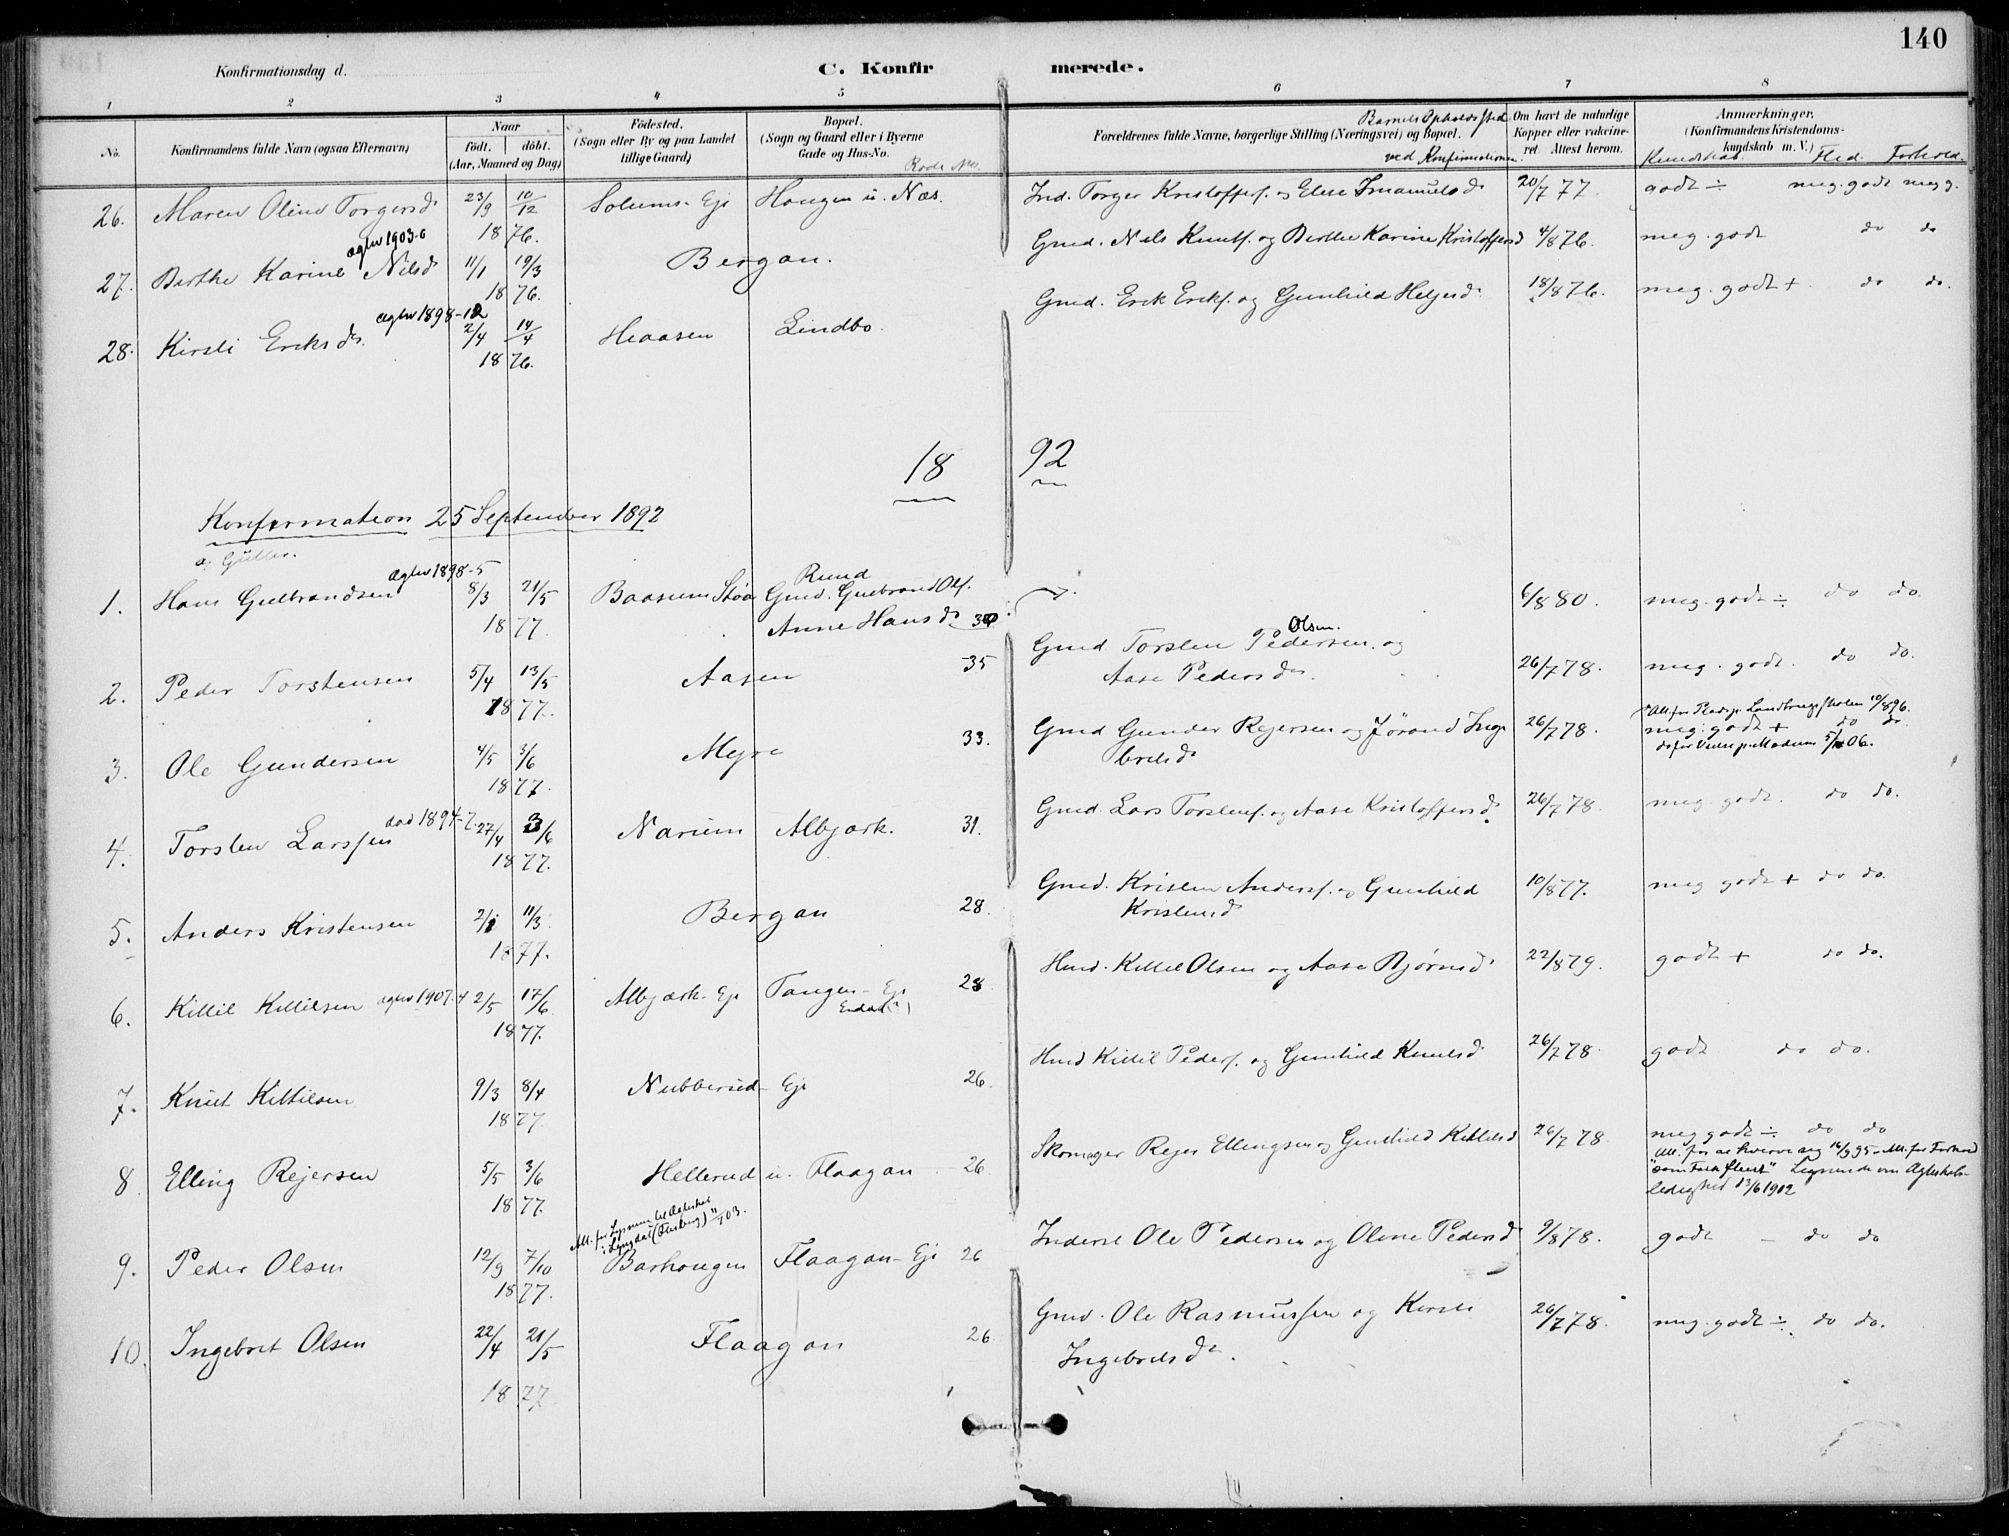 140
Konfirmationsdag d.
C. Konfirmerede.
1 2 3 4 5 6 7 8
No.
Konfirmandens fulde Navn (ogsaa Efternavn)
Naar
født. døbt.
(Aar, Maaned og Dag)
Fødested.
(Sogn eller By og paa Landet
tillige Gaard)
Bopæl.
(Sogn og Gaard eller i Byerne
Gade og Hus-No.
Rode No.
Forældrenes fulde Navne, borgerlige Stilling (Næringsvei) og Bopæl.
Barnets Opholdssted
ved Konfirmationen.
Om havt de naturlige
Kopper eller vakcine-
ret Attest herom.
Anmærkninger.
(Konfirmandens Kristendoms-
kundskab m. V.)
Kundskab Flid. Forhold.
26. Maren Oline Torgersdr 23/9 10/12 1876. Solums-Eje Haugen u. Næs. Ind. Torger Kristoffers. og Elise Imanuelsdr 20/7 77. godt ÷ meg. godt meg g.
27. Berthe Karine Nilsdr ægtev 1903-6 11/1 19/3 1876. Bergan. Gmd. Nils Knuts. og Berthe Karine Kristoffersd 4/8 76. meg. godt do do
28. Kirsti Eriksdr ægtev 1898-12 2/4 14/4 1876. Haasen Lindbo. Gmd. Erik Eriks. og Gunhild Helgesdr. 18/8 76. meg. godt + do do.
18 92
Konfirmation 25 September 1892
a. Gutter.
1. Hans Gulbrandsen ægtev 1898-5 8/3 21/5 1877. Baasum Støa Rund Gmd. Gulbrand Ols. Anne Hansdr 6/8 80. meg. godt ÷ do do.
2. Peder Torstensen 5/4 13/5 1877. Aasen 35 Gmd Torsten Pedersen Olsen. og
Aase Pedersdr. 26/7 78. meg. godt. do do.
3. Ole Gundersen 4/5 3/6 1877. Myre 33. Gmd Gunder Rejersen og Jørand Inge
bretsdr 26/7 78. Att. for Landbrugsskolen 10/8 96.
meg. godt + do do.
4. Torsten Larssen død 1894-7. 27/4 3/6 1877. Narum Albjærk. 31. Gmd. Lars Torstens. og Aase Kristoffersdr 26/7 78. meg. godt. do do.
5. Anders Kristensen 2/1 11/3 1877. Bergan 28. Gmd. Kristen Anders. og Gunhild
Kristensd 10/8 77. meg godt + do do.
6. Kittil Kittilsen ægtev 1907-4 2/5 17/6 1877. Albjærk-Eje Tangen-Eje 28 Hmd. Kittil Olsen og Aase Bjørnsdr 22/8 79. godt + do do.
7. Knut Kittilsen 9/3 8/4 1877. Nubberud-Eje 26. Hmd Kittil Peders. og Gunhild Knutsd 26/7 78. godt do do.
8. Elling Rejersen 5/5 3/6 1877. Hellerud u. Flaagan 26. Skomager Rejer Ellingsen og Gunhild Kittilsd 26/7 78. meg godt ÷. do do
Att. for at hverve sig 16/9 95 - Att. for Forhold
Løsninde om Ægteskabs-
ledighed 13/6 1912
9. Peder Olsen 12/9 7/10 1877. Barhougen Flaagan-Eje 26 Inderst Ole Pedersen og Oline Pedersd 9/8 78. godt - do do
10. Ingebret Olsen 22/4 21/5 1877. Flaagan 26. Gmd. Ole Rasmussen og Kirsti
Ingebretsdr. 26/7 78. meg. godt ÷. do do.